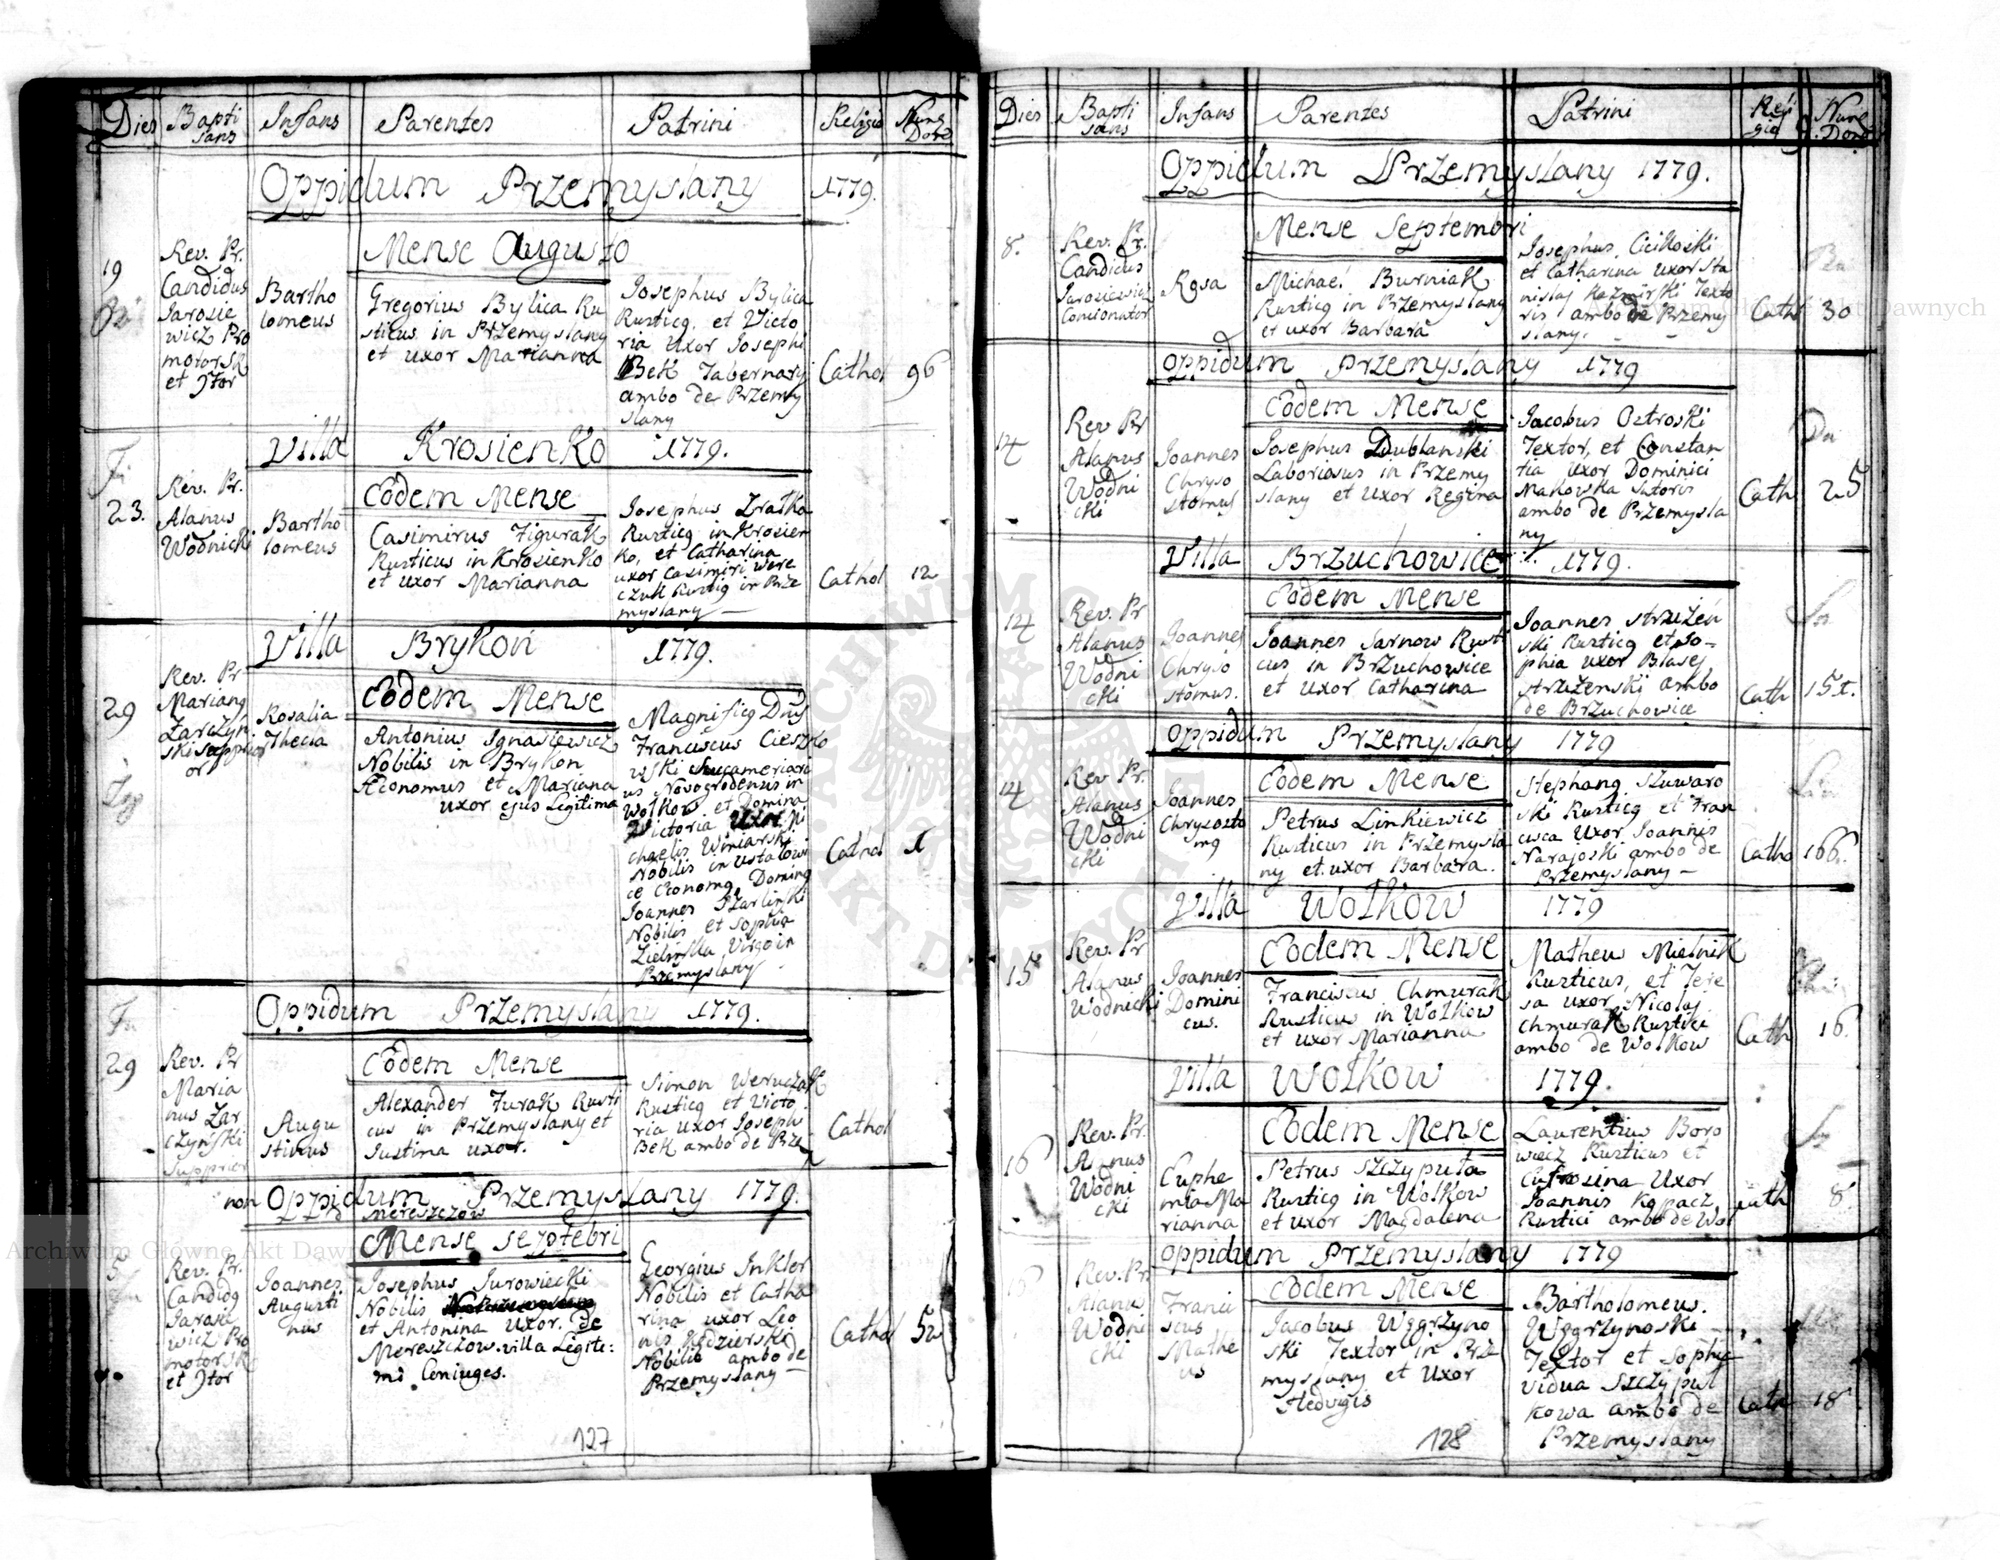 Dies
Bapti
sans
Infans
Parentes
Patrini
Religio
Nurus
Dom
Oppidum Przemyslany 1779.
Mense Augusto
19
Rev. Pr.
Candidus
Jarosie
wicz Pro
motor SR
et Jtor
Bartho
lomeus
Gregorius Bylica Ru
sticus in Przemyslany
et uxor Marianna
Josephus Bylica
Rusticq. et Victo
ria uxor Josephi
Bek Tabernarij
ambo de Przemy
slany
Cathol
96
Villa Krosienko 1779.
Eodem Mense
23.
Rev. Pr.
Alanus
Wodnicki
Bartho
lomeus
Casimirus Figurak
Rusticus in Krosienko
et uxor Marianna
Josephus Zratka
Rusticq in Krosien
ko, et Catharina
uxor Casimiri Were
czuk Rustiq in Prze
myslany
Cathol
12
Villa Brykon 1779.
Eodem Mense
29
Rev. Pr
Mariang
Zarczyn
ski Supprior
or
Rosalia
Thecla
Antonius Ignasiewicz
Nobilis in Brykon
Œconomus et Mariana
uxor ejus Legitima
Magnificq Dnus
Franciscus Cieszko
wski Succamerari
us Novogrodensis in
Wolkow et Domina
Victoria uxor Mi
chaelis Winiarski
Nobilis in Ustalowi
ce Œconomq Doming
Joannes Szarlinski
Nobilis et Sophia
Zielinska Virgo in
Przemyslany
Cathol
1
Oppidum Przemyslany 1779.
Eodem Mense
29
Rev. Pr
Maria
nus Zar
czynski
Supprior
Augu
stinus
Alexander Furak Rusti
cus in Przemyslany et
Justina uxor.
Simon Weruczak
Rusticq et Victo
ria uxor Joseph
Bek ambo de Prze
Cathol
non Oppidum Przemyslany 1779.
Mereszczow
Mense Septebri
5
Rev. Pr.
Candiog
Jarosie
wicz Pro
motor SR
et Jtor
Joannes
Augusti
nus
Josephus Jurowiecki
Nobilis
et Antonina uxor. de
Mereszczow. villa Legiti:
mi Coniuges.
Georgius Inkler
Nobilis et Catha
rina uxor Leo
nis Kedzierski
Nobilis ambo de
Przemyslany
Cathol
52
127
Dies
Bapti
sans
Infans
Parentes
Patrini
Reli
gio
Nurq
Dom
Oppidum Przemyslany 1779.
Mense Septembri
8.
Rev. Pr.
Candidus
Jarosiewicz
Concionator
Rosa
Michael Burniak
Rusticq in Przemyslany
et uxor Barbara
Josephus Cicikoski
et Catharina uxor Sta
nislaj Kazmirski Texto
ris ambo de Przemy
slany.
Cath
30
Oppidum Przemyslany 1779
Eodem Mense
14
Rev Pr
Alanus
Wodni
cki
Joannes
Chryso
stomus
Josephus Dublanski
Laboriosus in Przemy
slany et uxor Regina
Jacobus Ostroski
Textor, et Constan
tia uxor Dominici
Makowska Sutoris
ambo de Przemysla
ny
Cath
25
Villa Brzuchowice 1779.
Eodem Mense
14
Rev. Pr
Alanus
Wodni
cki
Joannes
Chryso
stomus.
Joannes Jarnow Rusti
cus in Brzuchowice
et uxor Catharina
Joannes Struzen
ski Rusticq et So-
phia uxor Blasej
Struzenski ambo
de Brzuchowice
Cath
15
Oppidum Przemyslany 1779
Eodem Mense
14
Rev. Pr.
Alanus
Wodni
cki
Joannes
Chrysosto
mq
Petrus Linkiewicz
Rusticus in Przemysla
ny et uxor Barbara.
Stephang Szuwaro
ski Rusticq et Fran
cisca uxor Joannis
Narajoski ambo de
Przemyslany
Catho
166.
Villa Wolkow 1779
Eodem Mense
15
Rev. Pr
Alanus
Wodnicki
Joannes
Domini
cus.
Franciscus Chmurak
Rusticus in Wolkow
et uxor Marianna
Matheus Mielnik
Rusticus, et Tere
sa uxor Nicolaj
Chmurak Rustici
ambo de Wolkow
Cath
16.
Villa Wolkow 1779.
Eodem Mense
16
Rev. Pr.
Alanus
Wodni
cki
Euphe
mia Ma
rianna
Petrus Szczyputa
Rusticq in Wolkow
et uxor Magdalena
Laurentius Boro
wiecz Rusticus et
Eufrosina uxor
Joannis Kopacz
Rustici ambo de Wol
Cath
8.
Oppidum Przemyslany 1779
Eodem Mense
Rev. Pr.
Alanus
Wodni
cki
Franci
scus
Mathe
us
Jacobus Węgrzyno
ski Textor in Prze
myslany et uxor
Hedvigis
Bartholomeus
Węgrzynoski
Textor et Sophia
vidua Szczypul
kowa ambo de
Przemyslany
Cath
18
128
Archiwum Główne Akt Dawnych